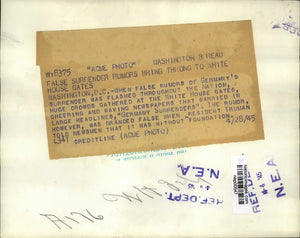 W16375 "ACME PHOTO" WASHINGTON BUREAU
FALSE SURRENDER RUMORS BRING THRONG TO WHITE
HOUSE GATES
WASHINGTON, D.C.--WHEN FALSE RUMORS OF GERMANY'S
SURRENDER WAS FLASHED THROUGHOUT THE NATION,
HUGE CROWDS GATHERED AT THE WHITE HOUSE GATES,
CHEERING AND WAVING NEWSPAPERS THAT CARRIED IN
LARGE HEADLINES, "GERMANY SURRENDERS". THE RUMOR,
HOWEVER, WAS BRANDED FALSE WHEN PRESIDENT TRUMAN
TOLD NEWSMEN THAT IT WAS WITHOUT FOUNDATION.
CREDITLINE (ACME PHOTO) 4/28/45
REF. DEPT.
N.E.A.
REF. DEPT.
N.E.A.